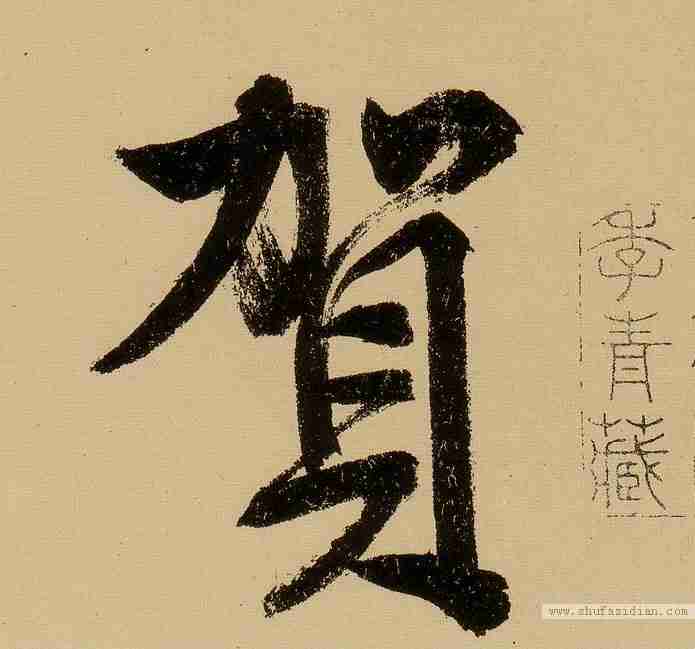 賀
季青藏
www.shufazidian.com